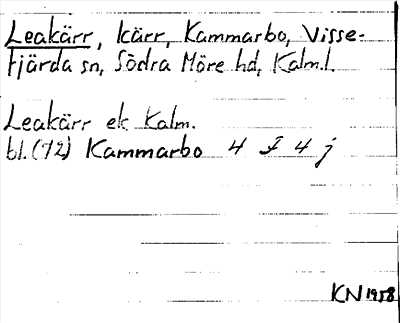 Leakärr, kärr, Kammarbo, Visse-
fjärda sn, Södra Möre hd, Kalm.l.
Leakärr ek Kalm.
bl. (72) Kammarbo 4 F 4 j
KN 1958